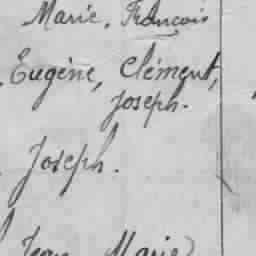 Marie, François
Eugène, Clément,
Joseph.
Joseph.
Jean Marie